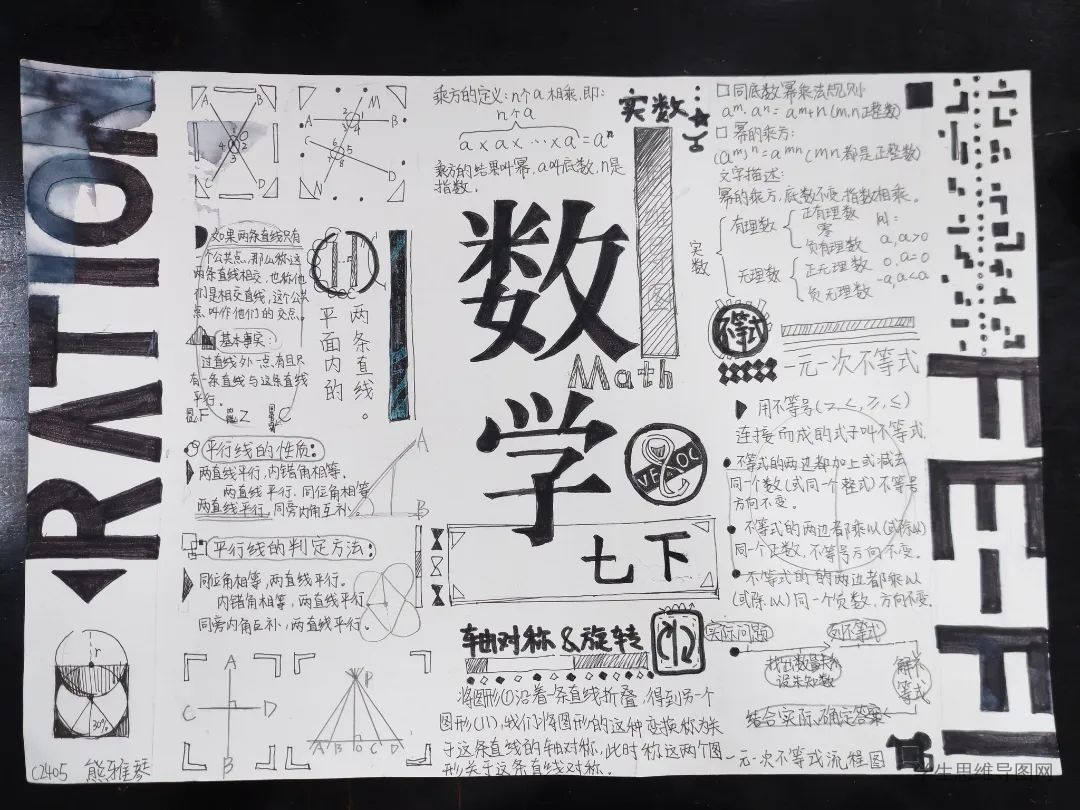 RATION
A B
4 1 2 3
C D
M
2 1
3 4
A B
6 5
7 8
N D
如果两条直线只有
一个公共点,那么称这
两条直线相交,也称他
们是相交直线,这个公共
点叫作他们的交点。
基本事实:
过直线外一点,有且只
有一条直线与这条直线
平行。
F Z C
平面内的
两条直线。
平行线的性质:
两直线平行,内错角相等。
两直线平行,同位角相等
两直线平行,同旁内角互补。
A
B
平行线的判定方法:
同位角相等,两直线平行。
内错角相等,两直线平行
同旁内角互补,两直线平行。
r
30°
A
C D
B
P
A B O C D
C2405 熊雅琴
乘方的定义:n个a相乘,即:
n个a
a×a×…×a=aⁿ
乘方的结果叫幂,a叫底数,n是
指数。
实数
数
Math
学
七下
轴对称&旋转
将图形(I)沿着一条直线折叠,得到另一个
图形(II),我们将图形的这种变换称为关
于这条直线的轴对称,此时称这两个图
形关于这条直线对称。
同底数幂乘法规则
aᵐ·aⁿ=aᵐ⁺ⁿ(m,n正整数)
幂的乘方:
(aᵐ)ⁿ=aᵐⁿ(mn都是正整数)
文字描述:
幂的乘方,底数不变,指数相乘。
实数
有理数
正有理数
零
负有理数
无理数
正无理数
负无理数
a,a>0
0,a=0
-a,a<a
不等式
一元一次不等式
用不等号(>,<,≥,≤)
连接而成的式子叫不等式.
不等式的两边都加上或减去
同一个数(或同一个整式)不等号
方向不变。
不等式的两边都乘以(或除以)
同一个正数,不等号方向不变。
不等式的的两边都乘以
(或除以)同一个负数,方向不变。
实际问题
列不等式
设未知数
解不
等式
结合实际,确定答案
一元一次不等式流程图
学生思维导图网